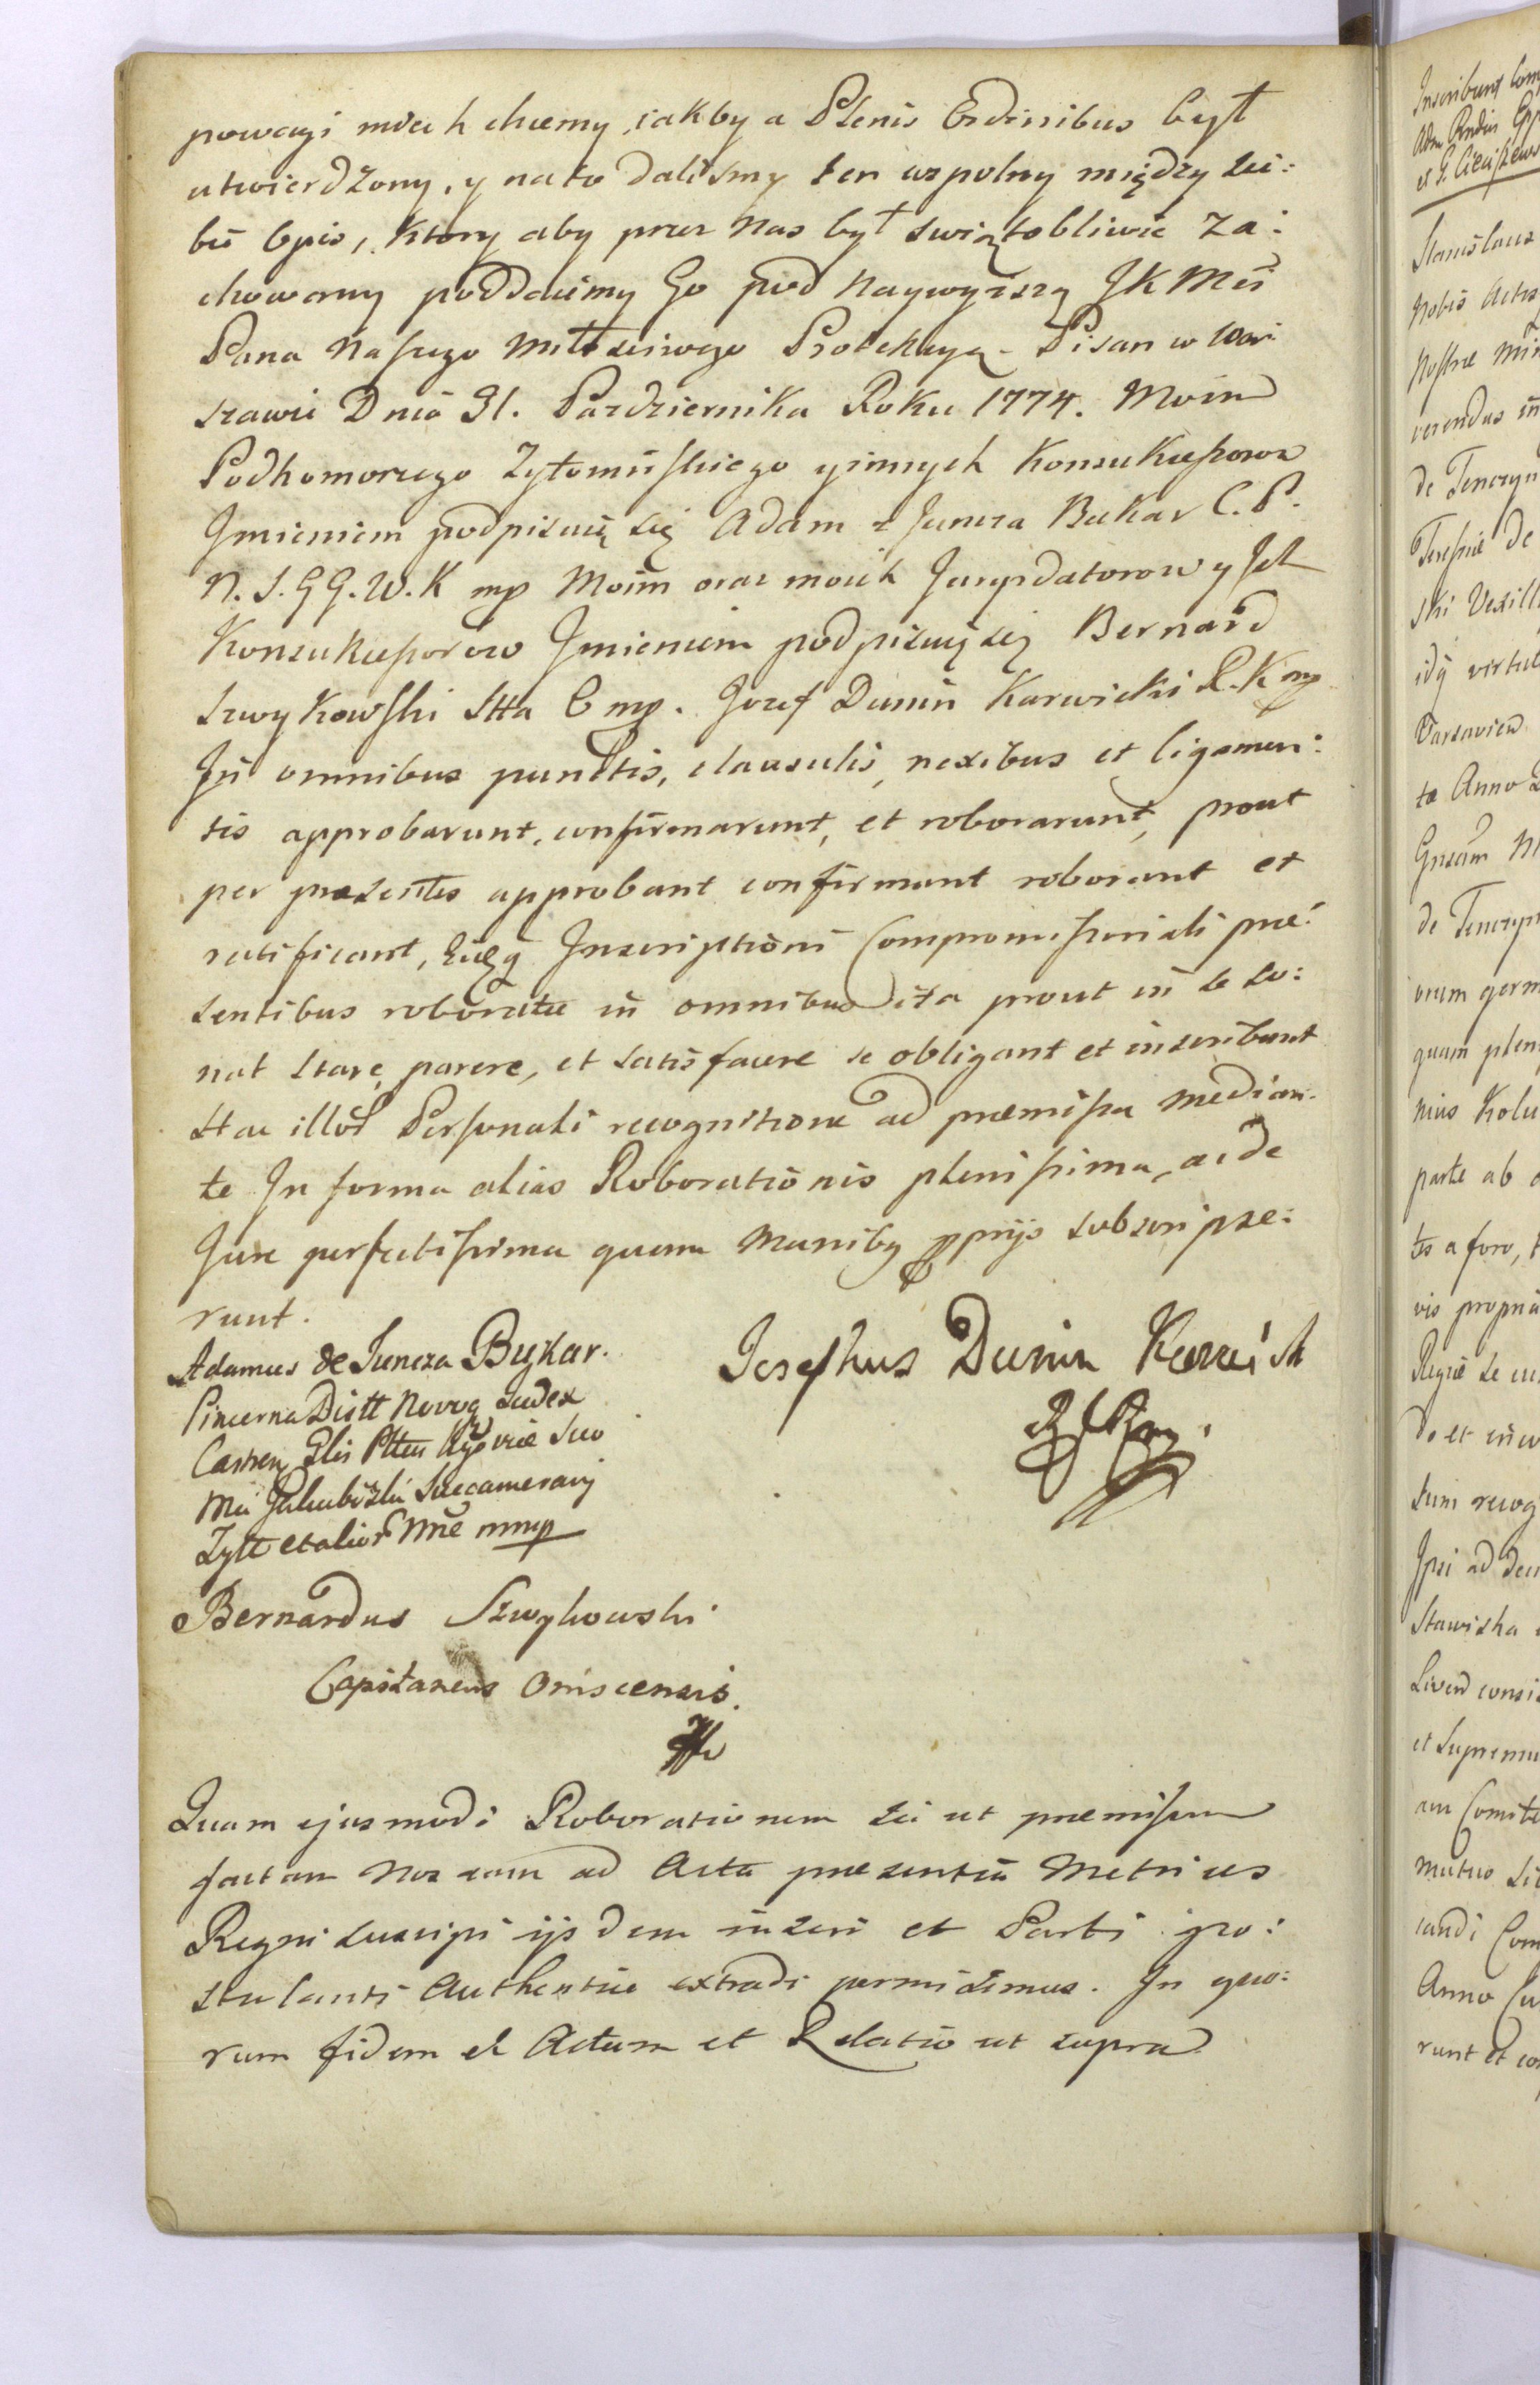 powagi miec h chcemy, iakby a Plenis Ordinibus był
utwierdzony, y na to daliśmy ten wspolny między sie:
bie Opis, ktory aby przez Nas był swiątobliwie za:
chowany poddaiemy Go pod Naywyższą JK Mci
Pana Naszego Miłosciwego Protekcyą - Pisan w War:
szawie Dnia 31. Pazdziernika Roku 1774. Moim
Podkomorzego Zytomirskiego y innych Konsukcessorow
Imieniem podpisuię się Adam z Juncza Bukar C. P.
N. S. G G. W. K mp Moim oraz moich Jurydatorow y Ich
Konsukcessorow Imieniem podpisuię się Bernard
Szwykowski Stta O mp. Jozef Dunin Karwicki R. K mp
In omnibus punctis, clausulis, nexibus et ligamen:
tis approbarunt, confirmarunt, et roborarunt, prout
per præsentes approbant confirmant roborant et
ratificant, Eidq Inscriptioni Compromissoriali præ:
sentibus roboratæ in omnibus ita prout in se so:
nat stare, parere, et satisfacere se obligant et inscribunt
Hac illor Personali recognitione ad præmissa median:
te In forma alias Roborationis plenissima, ac de
Jure perfectissima quam Maniby pprijs subscripse:
runt.
Adamus de Juncza Bukar.
Pincerna Distt Novog Judex
Castren Glis Pltus Kijoviæ Suo
Mci Jakubi Suecamerarij
Zytt et alior Nne mmp
Josephus Dunin Karwicki
Bernardus Szwykowski
Capitaneus Oniscensis.
Quam ejusmodi Roborationem sic ut præmissum
factam Nos eam ad Acta præsentia Metrices
Regni suscipi ijsdem inseri et Parti po:
stulanti Authentice extradi permisimus. In quo:
rum fidem et Actum et Relatio ut supra
Inscribunt
Adm Rndus
et G. Cieciszews
Stanislaus
Nobis Actis
Nostræ
verendus in
de Tenczyn
Teressiæ de
ski Vexill
idq virtut
Varsavien
ta Anno
Gnsam
de Tenczyn
orum germ
quam plen
nius Kolu
parte ab
tes a foro,
vis propriæ
Regiæ se
do et
sum recog
Ipsi ad
Stawiska
Livend consi
et Supremu
Comite
mutuo
candi Com
Anno
runt et co